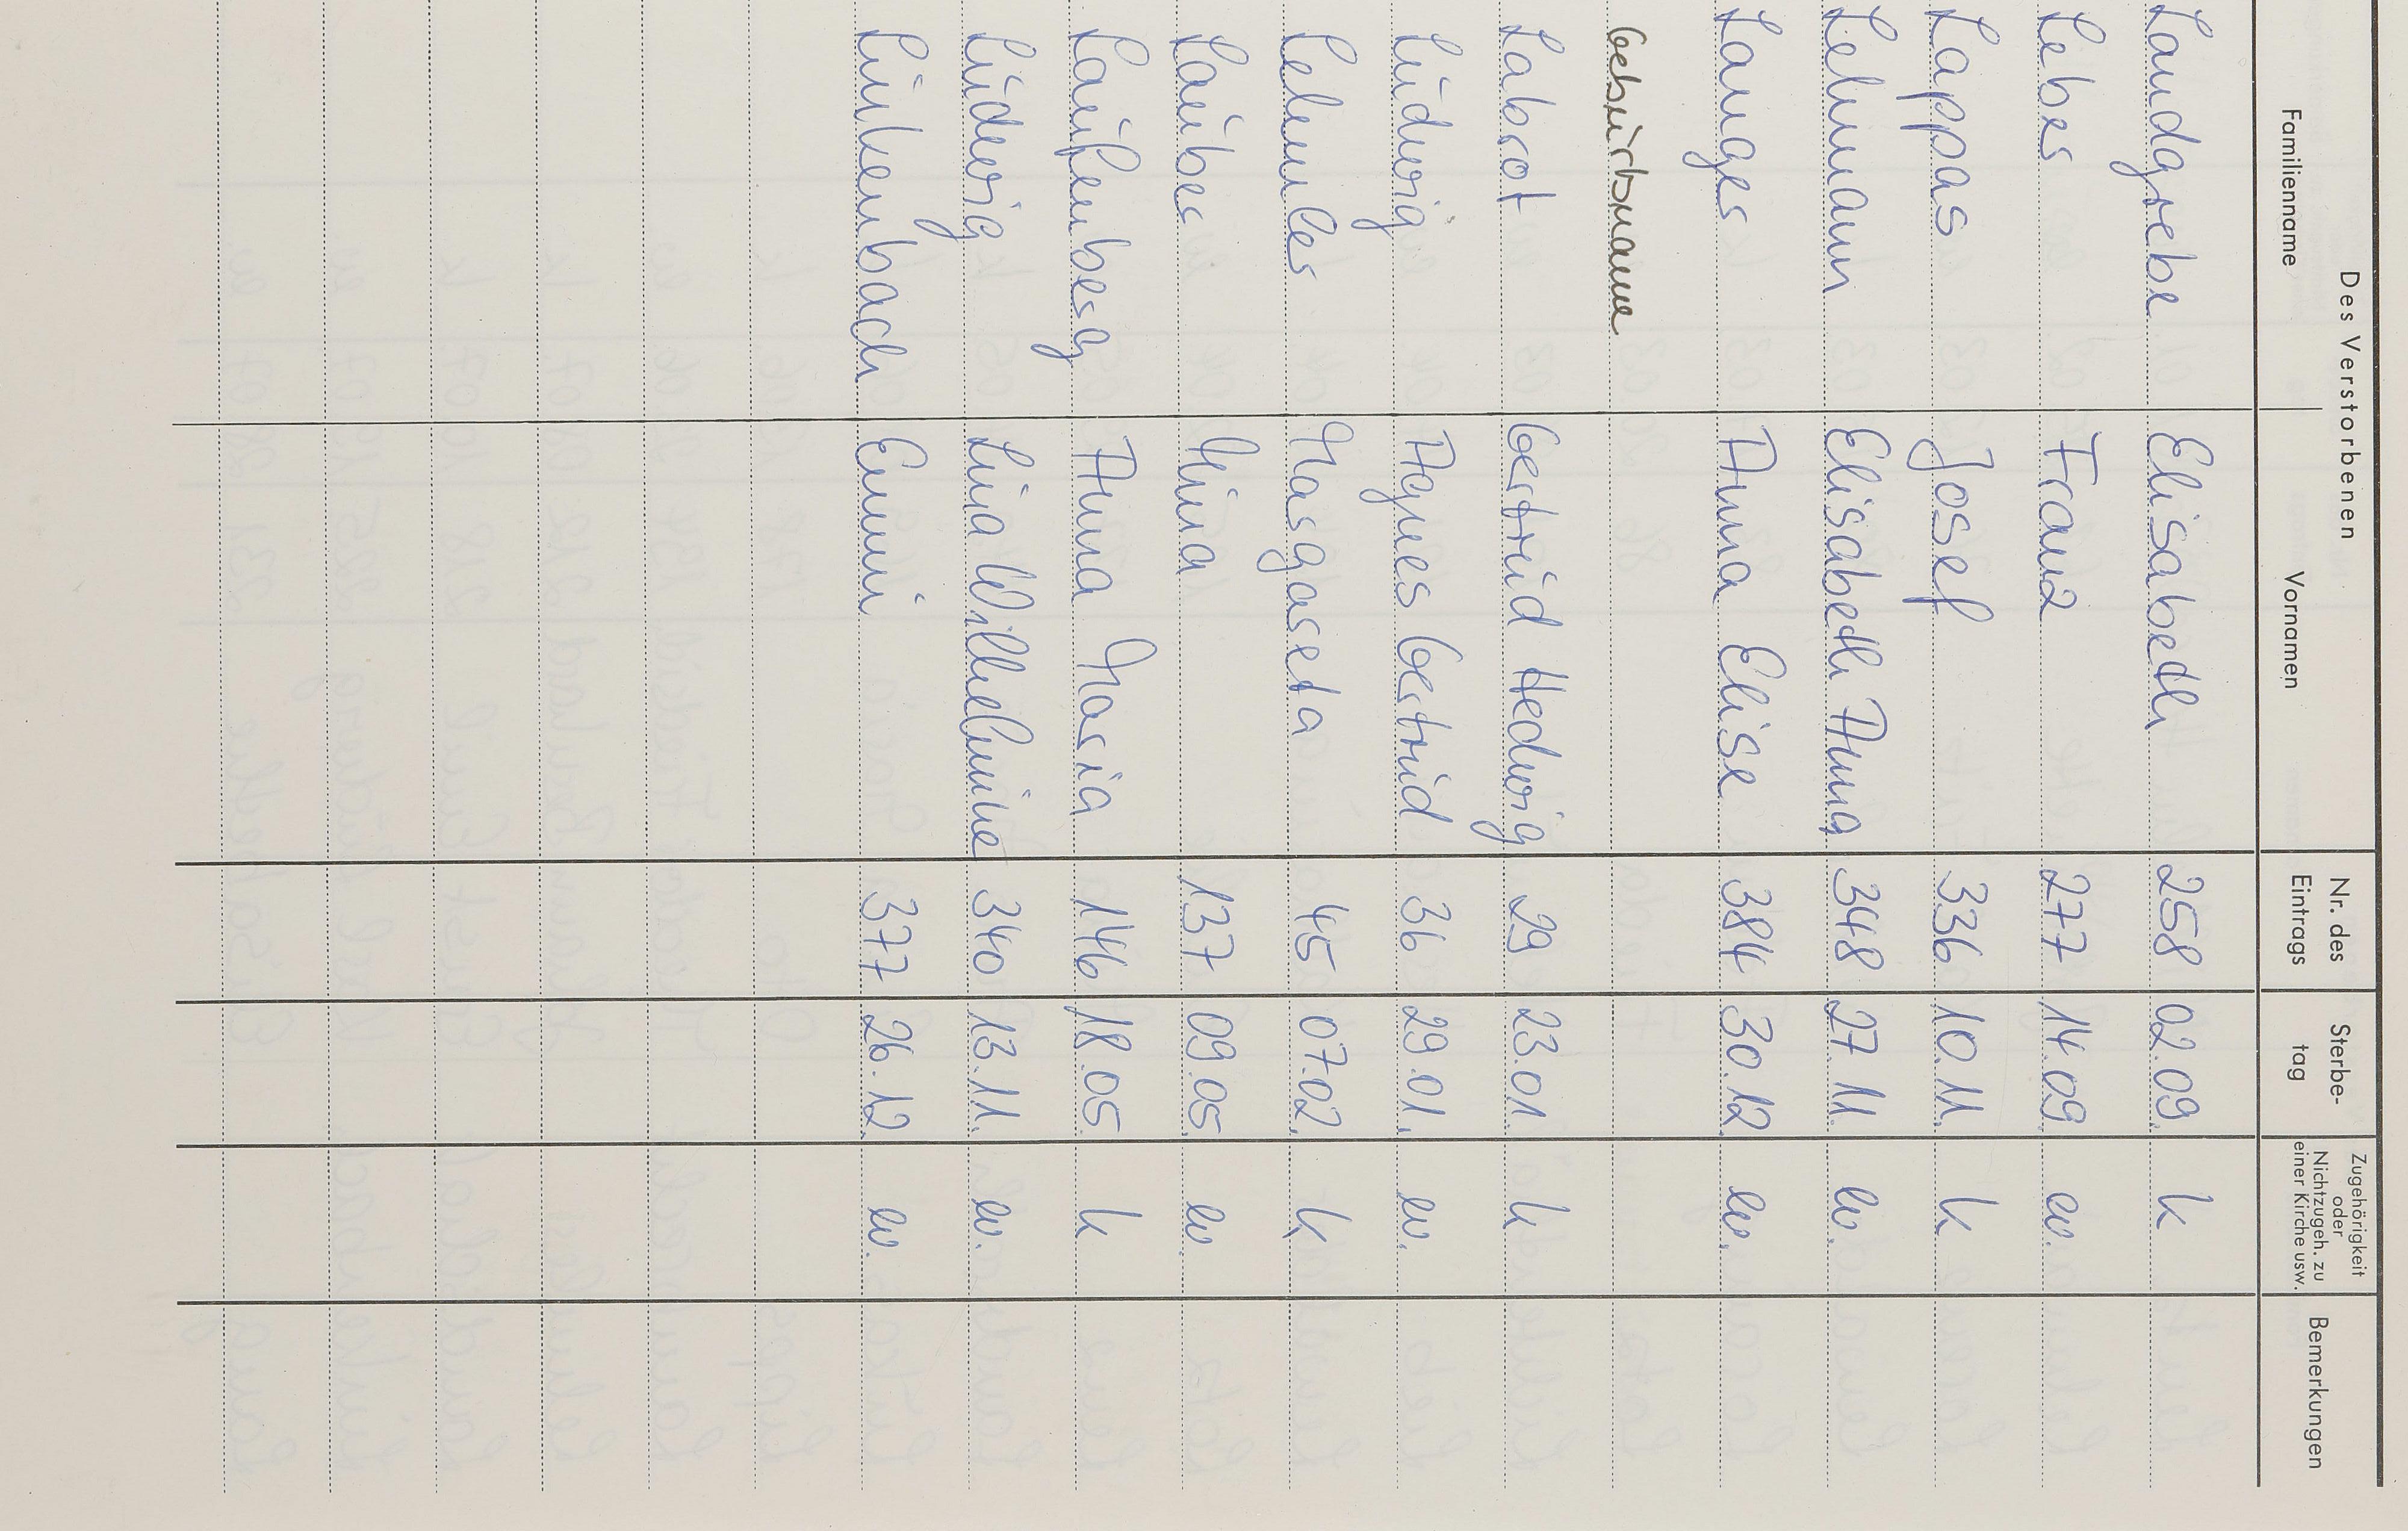 Des Verstorbenen
Familienname Vornamen Nr. des Eintrags Sterbe-tag Zugehörigkeit oder Nichtzugeh. zu einer Kirche usw. Bemerkungen
Landgrebe Elisabeth 258 02.09. k
Leber Franz 277 14.09. ev.
Lappas Josef 336 10.11. k
Lehmann Elisabeth Anna 348 27.11. ev.
Langer Anna Elise 384 30.12. ev.
Geburtsname
Labrot Gertrud Hedwig 29 23.01. k
Ludwig Agnes Gertrud 36 29.01. ev.
Lehmler Margareta 45 07.02. k
Lauber Mina 137 09.05. ev.
Laufenberg Anna Maria 146 18.05. k
Ludewig Lina Wilhelmine 340 13.11. ev.
Linkenbach Emmi 377 26.12. ev.